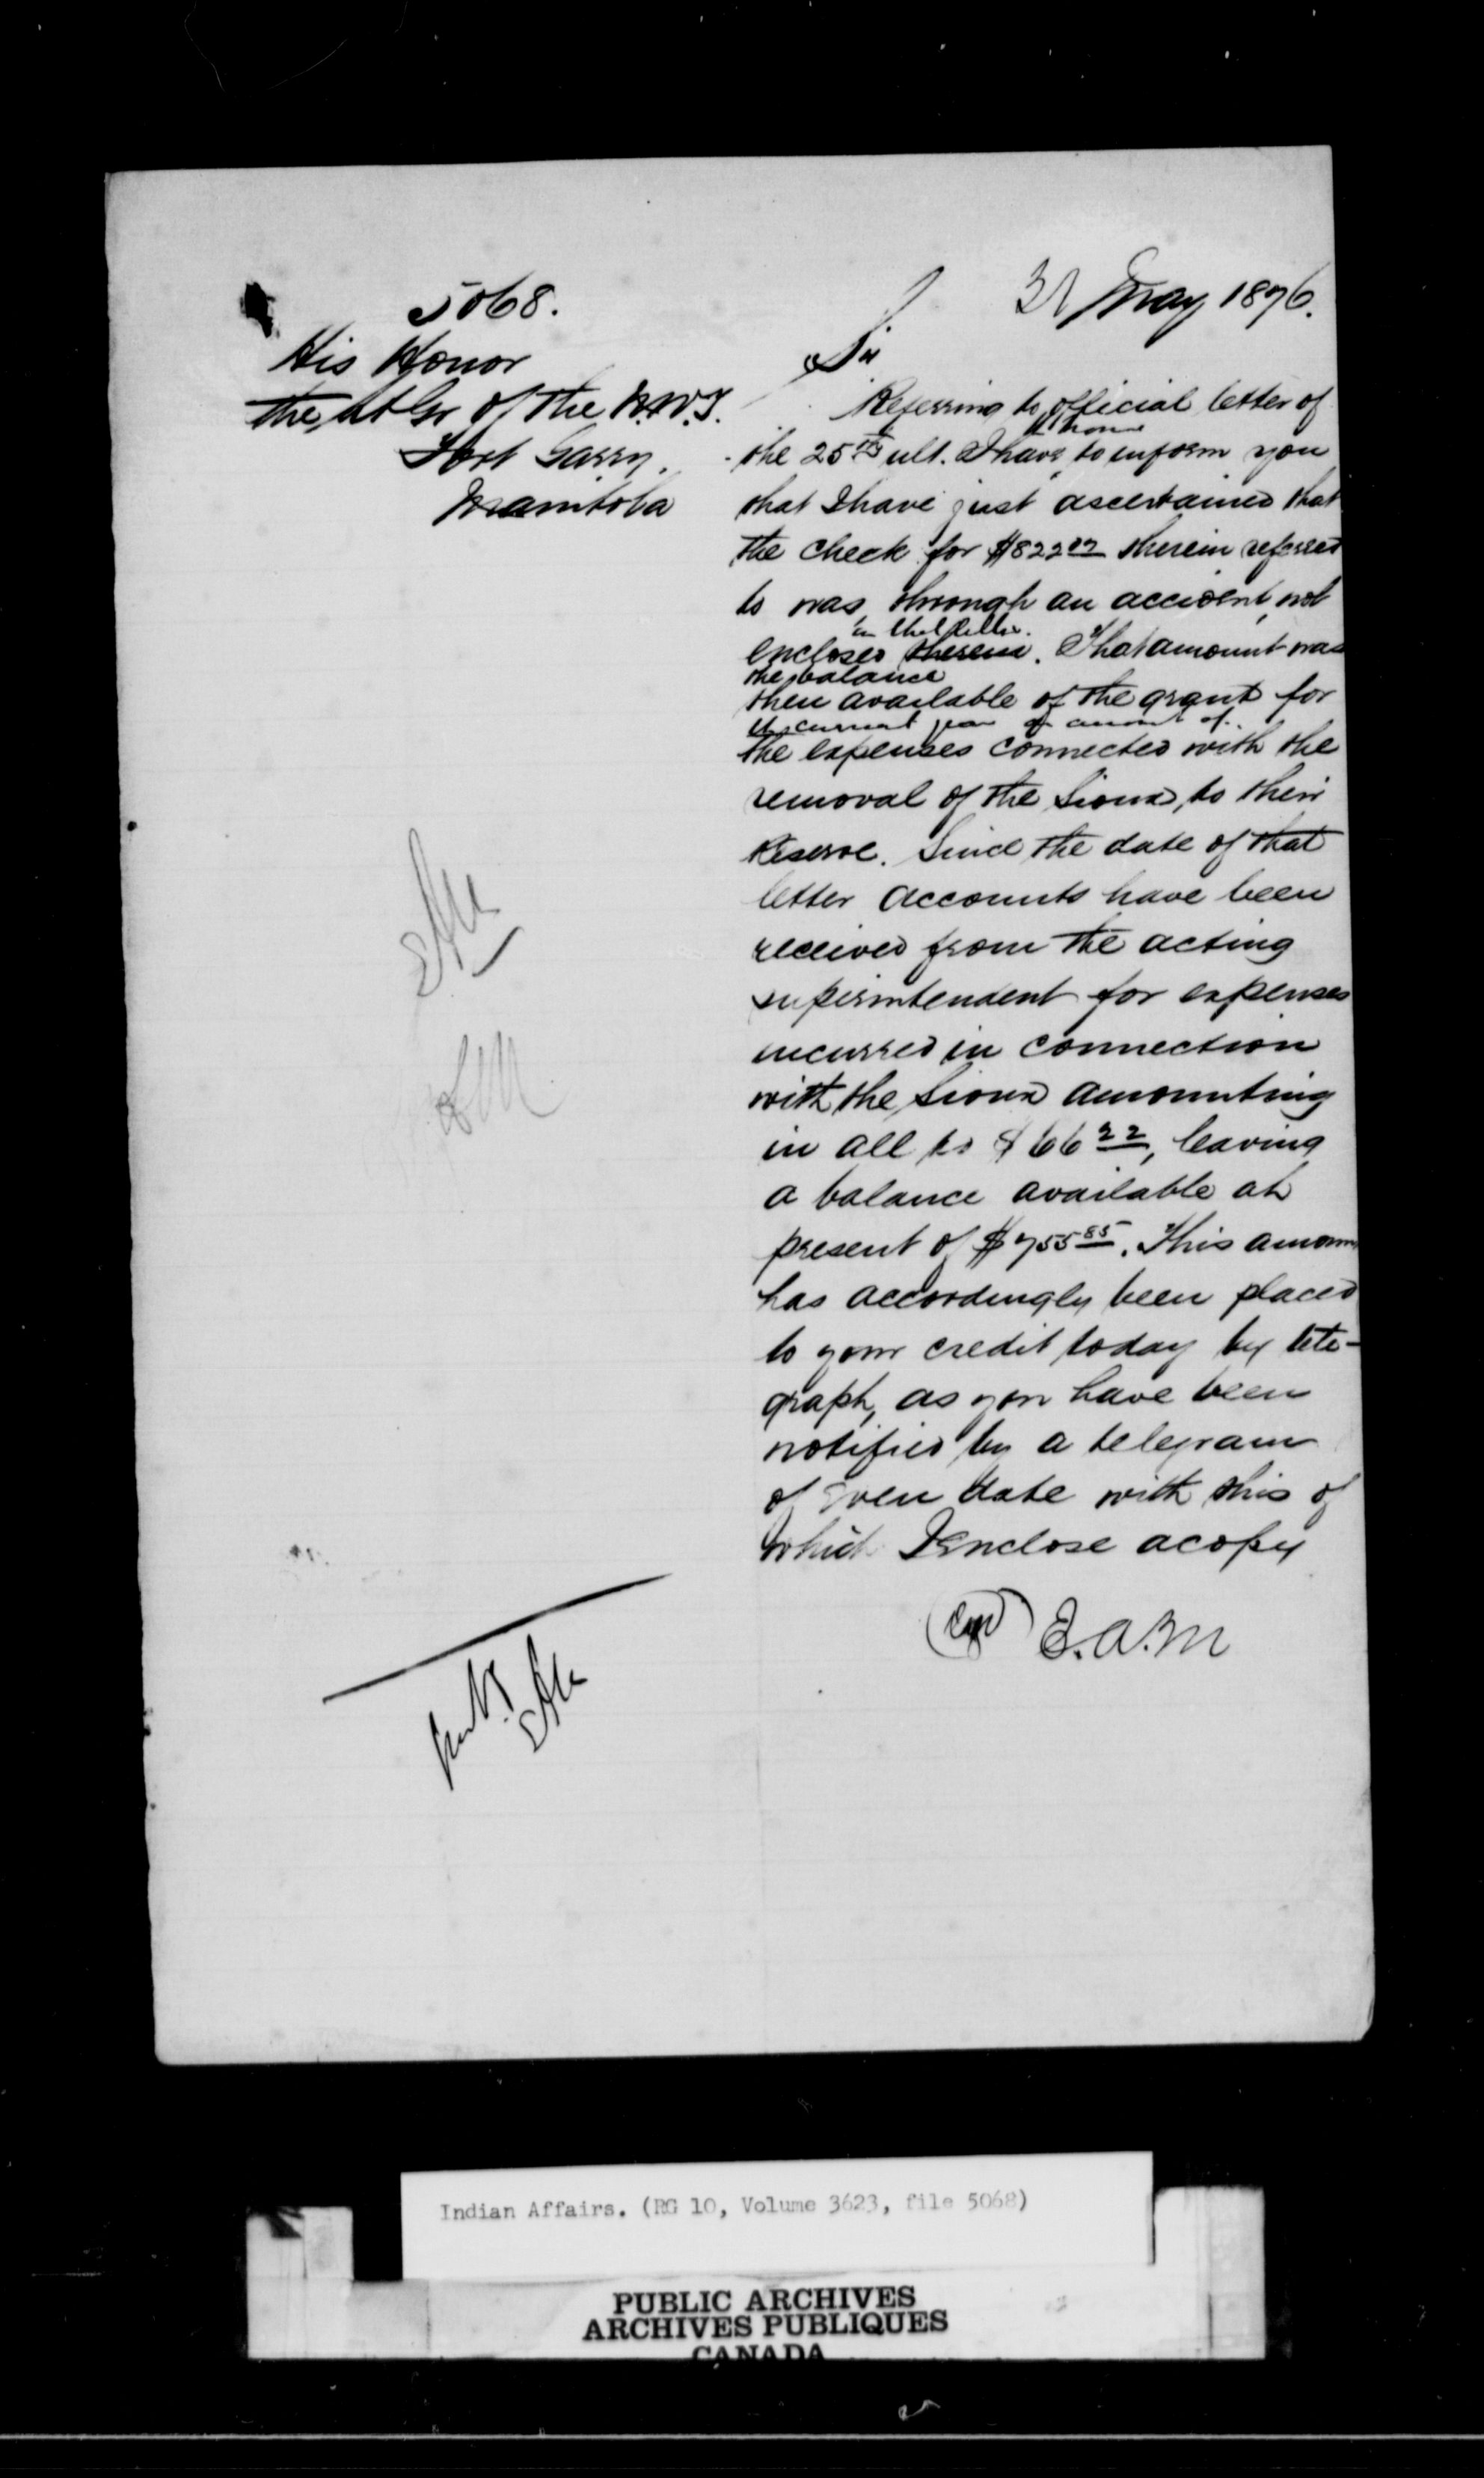 5068.
31 May 1876.
His Honor
the Lt Gr of the N.W.T.
Fort Garry.
Manitoba
Sir
Referring to official letter of
the 25th ult. I have the honor to inform you
that I have just ascertained that
the check for $822 07 therein referred
to was, through an accident, not
enclosed therein in that letter. That amount was
the balance
then available of the grant for
the current year on account of
the expenses connected with the
removal of the Sioux, to their
Reserve. Since the date of that
letter accounts have been
received from the acting
superintendent for expenses
incurred in connection
with the Sioux amounting
in all to $66 22, leaving
a balance available at
present of $755 85. This amount
has accordingly been placed
to your credit today by tele-
graph, as you have been
notified by a telegram
of even date with this of
which I enclose a copy
(Sgd) E.A.M
Indian Affairs. (RG 10, Volume 3623, file 5068)
PUBLIC ARCHIVES
ARCHIVES PUBLIQUES
CANADA